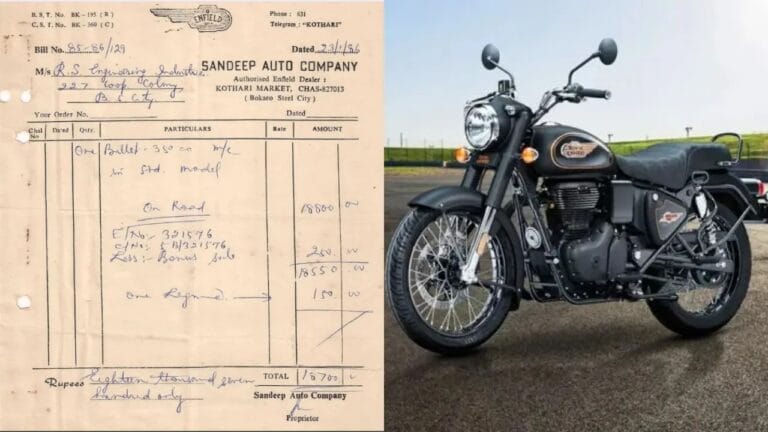 B. S. T. No. BK - 195 ( R )
C. S. T. No. BK - 360 ( C )
ENFIELD
Phone : 631
Telegram : "KOTHARI"
Bill No. 85-86/129
Dated 23/1/86
SANDEEP AUTO COMPANY
Authorised Enfield Dealer :
KOTHARI MARKET, CHAS-827013
( Bokaro Steel City )
M/s R. S. Engineering Industries
227 Coop. Colony
B. S. City
Your Order No. Dated
Chal No Dated Qnty. PARTICULARS Rate AMOUNT
One Bullet - 350 cc m/c
in Std. model
On Road 18800 00
E/No:- 321576
C/No:- 5 B/321576
Less:- Bonus 250 00
18550 00
One Legguard 150 00
TOTAL 18700
Rupees Eighteen thousand seven
hundred only
Sandeep Auto Company
Proprietor